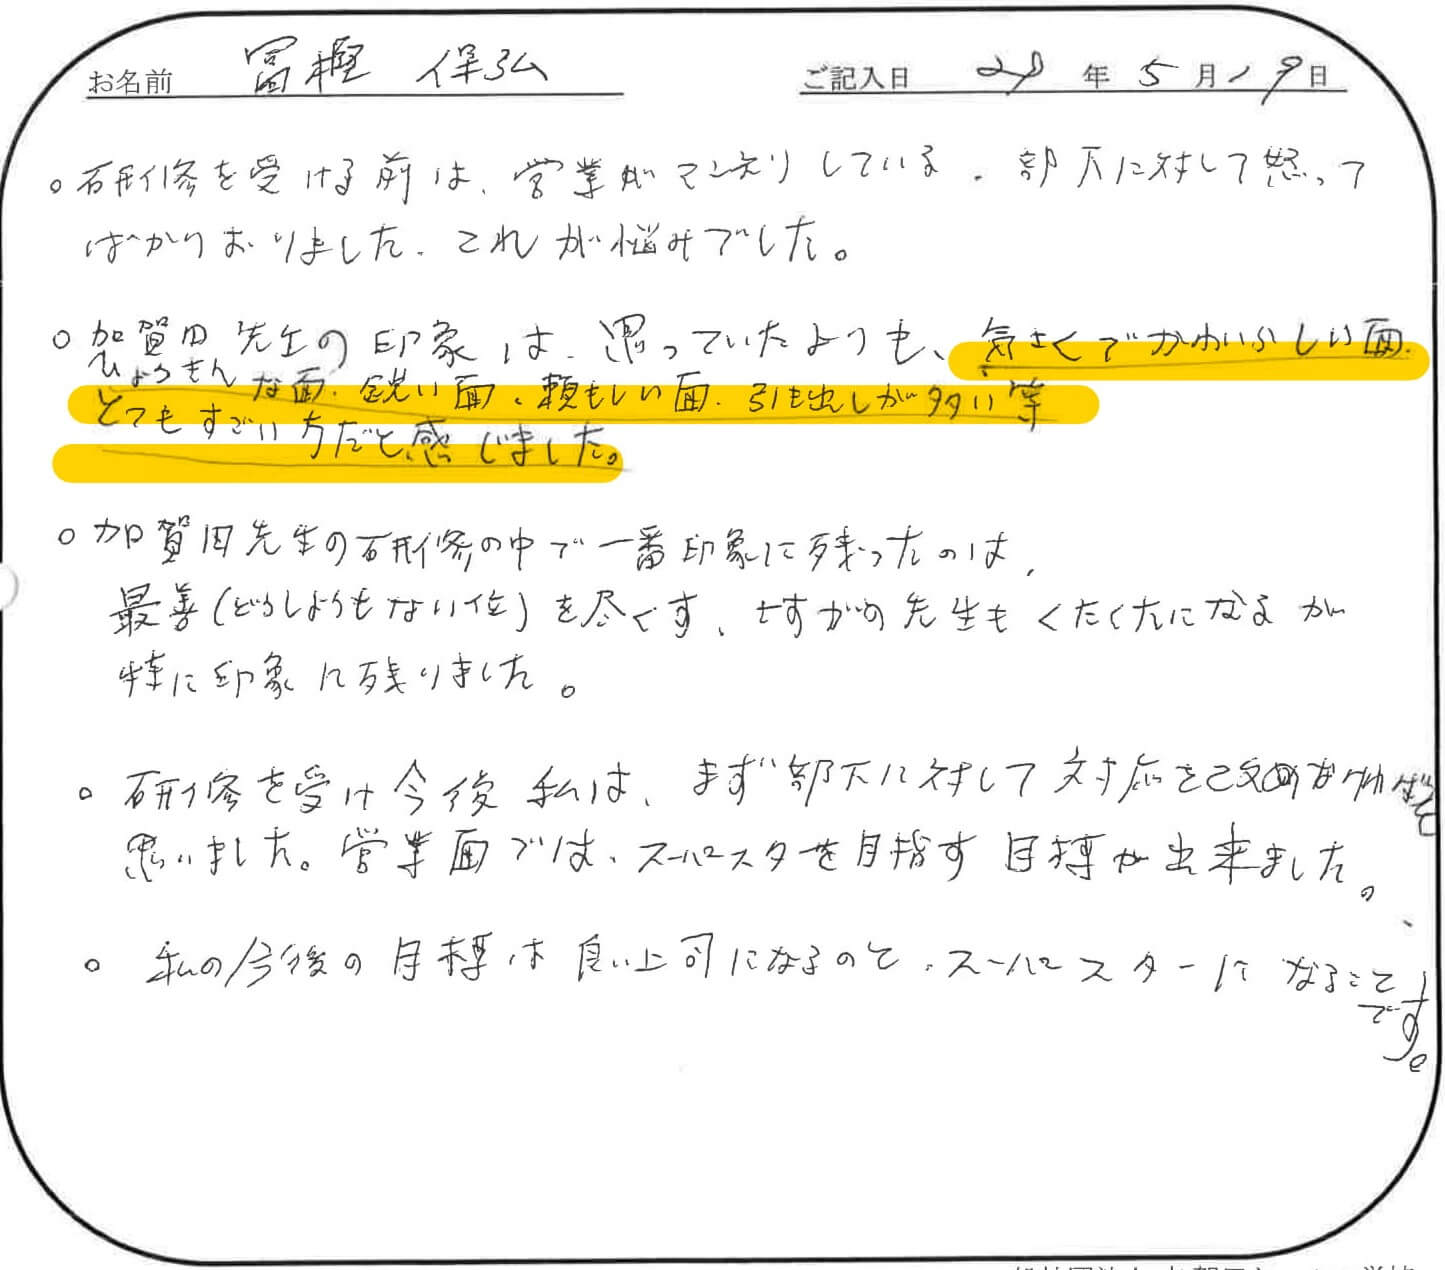 お名前 冨樫 保弘 ご記入日 29年5月19日
。研修を受ける前は、営業がマンネリしている。部下に対して怒って
ばかりおりました。これが悩みでした。
。加賀田先生の印象は、思っていたよりも、気さくでかわいらしい面、
ひょうきんな面、鋭い面、頼もしい面、引き出しが多い等
とてもすごい方だと感じました。
。加賀田先生の研修の中で一番印象に残ったのは、
最善(どうしようもない位)を尽くす、さすがの先生もくたくたになるが
特に印象に残りました。
。研修を受け今後私は、まず部下に対して対応を改めなければと
思いました。営業面では、スーパースターを目指す目標が出来ました。
。私の今後の目標は良い上司になるのと、スーパースターになること
です。